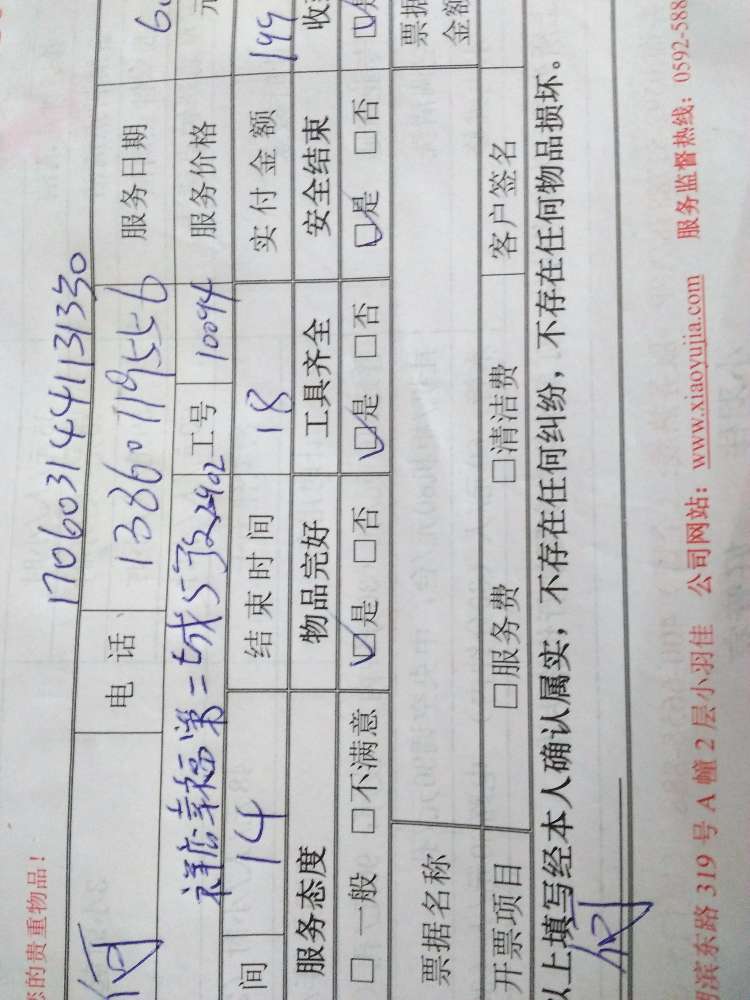 您的贵重物品！
1706031441131330
何 电话 13860719556 服务日期 6.
祥店幸福第二城5号2902 工号 10094 服务价格 元
间 14 结束时间 18 实付金额 199
服务态度 物品完好 工具齐全 安全结束 收
□一般 □不满意 ☑是 □否 ☑是 □否 ☑是 □否
票据名称 票据金额
开票项目 □服务费 □清洁费 客户签名
以上填写经本人确认属实，不存在任何纠纷，不存在任何物品损坏。
何
湖滨东路 319 号 A 幢 2 层小羽佳 公司网站：www.xiaoyujia.com 服务监督热线：0592-588